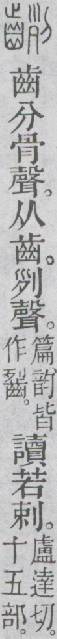 齒分骨聲。从齒。𠛱聲。篇韵皆作䶛。讀若剌。盧達切。十五部。